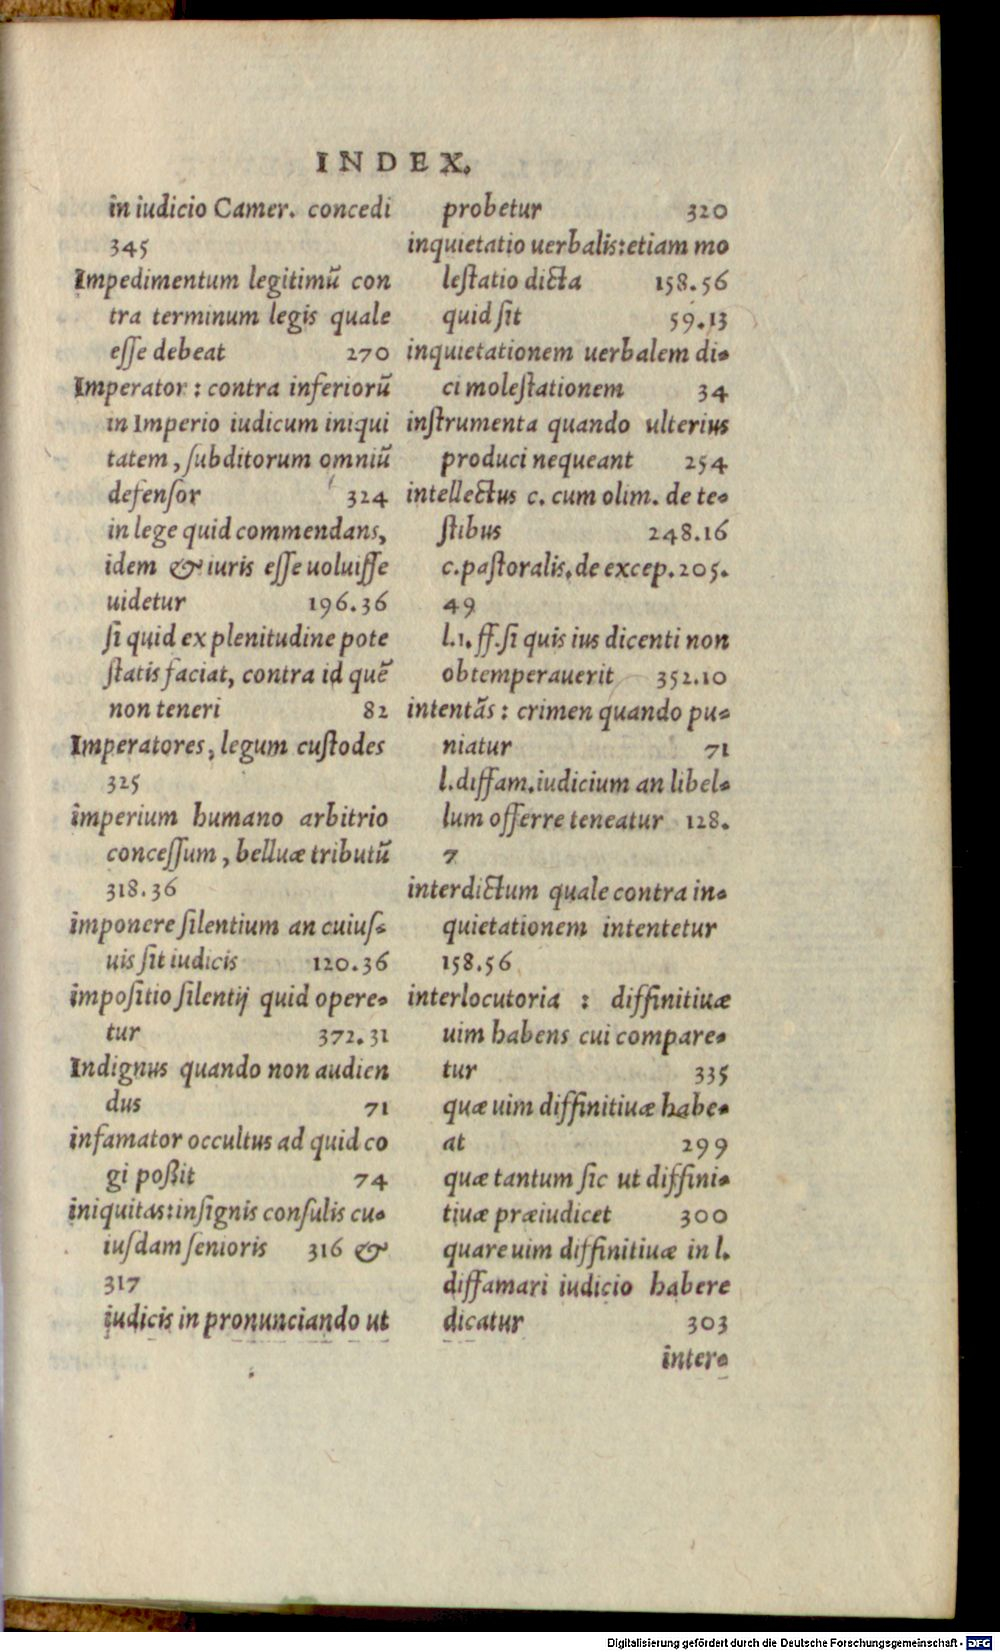 INDEX.
in iudicio Camer. concedi
345
Impedimentum legitimū con
tra terminum legis quale
esse debeat 270
Imperator : contra inferiorū
in Imperio iudicum iniqui
tatem, subditorum omniū
defensor 324
in lege quid commendans,
idem & iuris esse uoluisse
uidetur 196.36
si quid ex plenitudine pote
statis faciat, contra id quē
non teneri 82
Imperatores, legum custodes
325
imperium humano arbitrio
concessum, belluæ tributū
318.36
imponere silentium an cuius-
uis sit iudicis 120.36
impositio silentij quid opere-
tur 372.31
Indignus quando non audien
dus 71
infamator occultus ad quid co
gi poßit 74
iniquitas: insignis consulis cu-
iusdam senioris 316 &
317
iudicis in pronunciando ut
probetur 320
inquietatio uerbalis: etiam mo
lestatio dicta 158.56
quid sit 59.13
inquietationem uerbalem di-
ci molestationem 34
instrumenta quando ulterius
produci nequeant 254
intellectus c. cum olim. de te-
stibus 248.16
c. pastoralis. de excep. 205.
49
l.1. ff. si quis ius dicenti non
obtemperauerit 352.10
intentās : crimen quando pu-
niatur 71
l. diffam. iudicium an libel-
lum offerre teneatur 128.
7
interdictum quale contra in-
quietationem intentetur
158.56
interlocutoria : diffinitiuæ
uim habens cui compare-
tur 335
quæ uim diffinitiuæ habe-
at 299
quæ tantum sic ut diffini-
tiuæ præiudicet 300
quare uim diffinitiuæ in l.
diffamari iudicio habere
dicatur 303
inter-
Digitalisierung gefördert durch die Deutsche Forschungsgemeinschaft - DFG